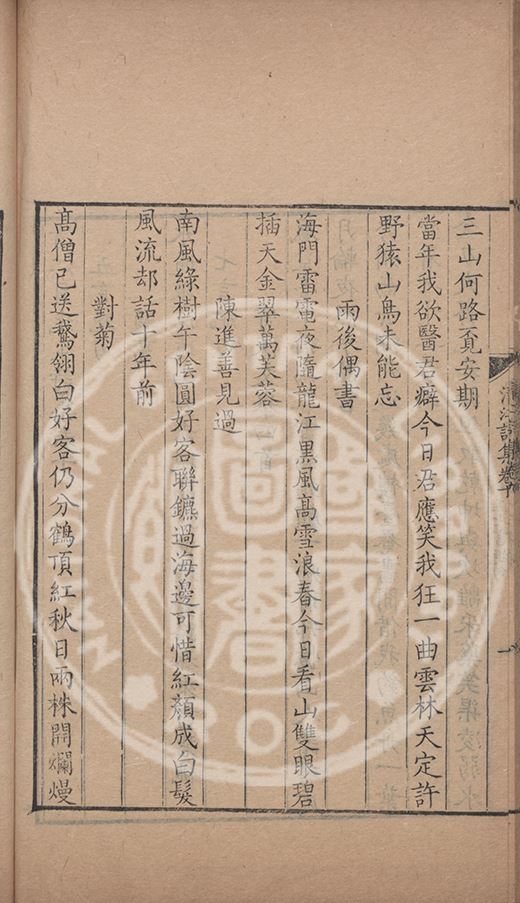 三山何路覔安期
當年我欲醫君癖今日君應笑我狂一曲雲林天定許
野猿山鳥未能忘
雨後偶書
海門雷電夜隨龍江黑風髙雪浪舂今日看山雙眼碧
插天金翠萬芙蓉
陳進善見過
南風綠樹午陰圓好客聯鑣過海邊可惜紅顏成白髮
風流却話十年前
對菊
髙僧已送鵞翎白好客仍分鶴頂紅秋日兩株開爛熳